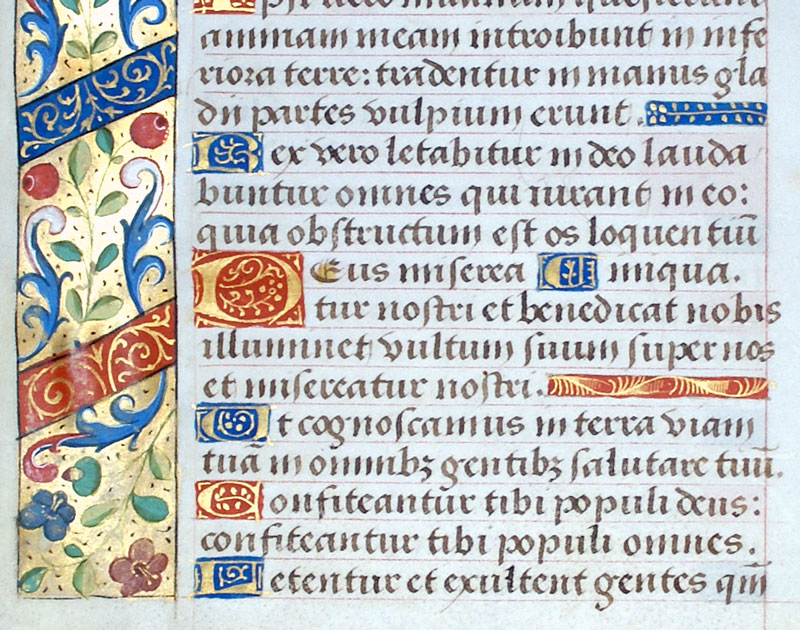 Ipsi vero in vanum quesierunt
animam meam introibunt in infe
riora terre: tradentur in manus gla
dii partes vulpium erunt.
Rex vero letabitur in deo lauda
buntur omnes qui iurant in eo:
quia obstructum est os loquentiū
Deus miserea iniqua.
tur nostri et benedicat nobis
illuminet vultum suum super nos
et misereatur nostri.
Et cognoscamus in terra viam
tuā in omnibꝫ gentibꝫ salutare tuū.
Confiteantur tibi populi deus:
confiteantur tibi populi omnes.
Letentur et exultent gentes qm̄